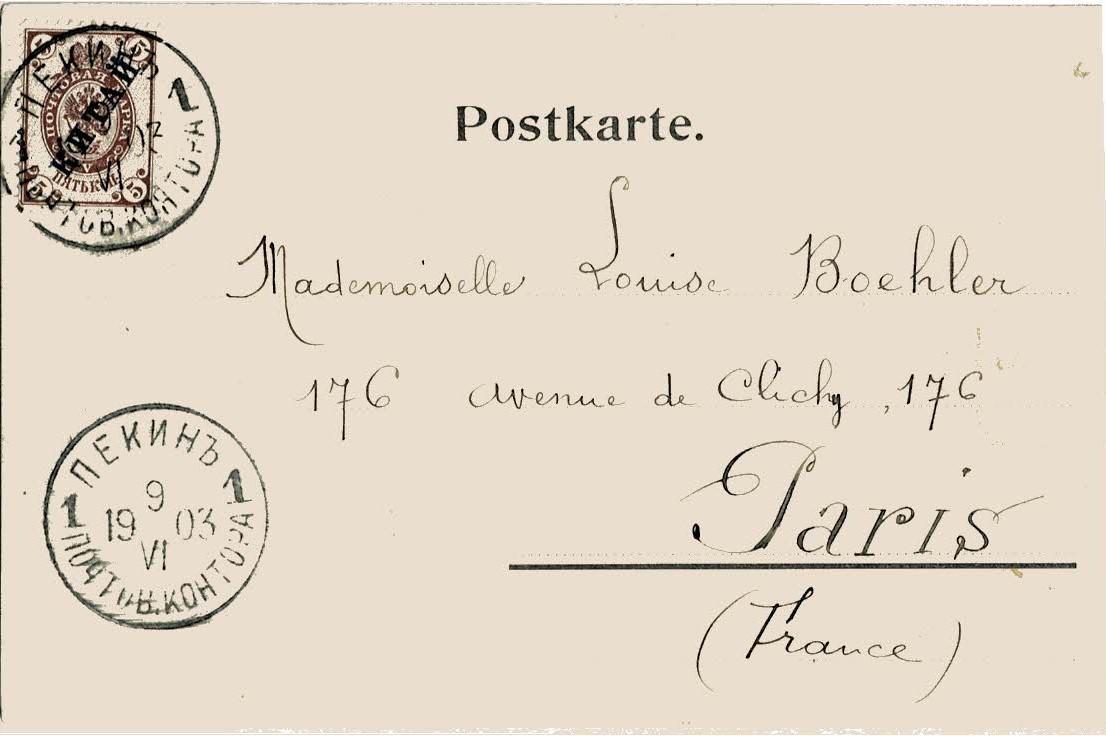 5 5
ПОЧТОВАЯ МАРКА
КИТАЙ
ПЯТЬ КОП.
5 5
ПЕКИНЪ
1
VI
ПОЧТОВ. КОНТОРА
Postkarte.
Mademoiselle Louise Boehler
176 avenue de Clichy, 176
Paris
(France)
ПЕКИНЪ
1 1
9
19 03
VI
ПОЧТОВ. КОНТОРА